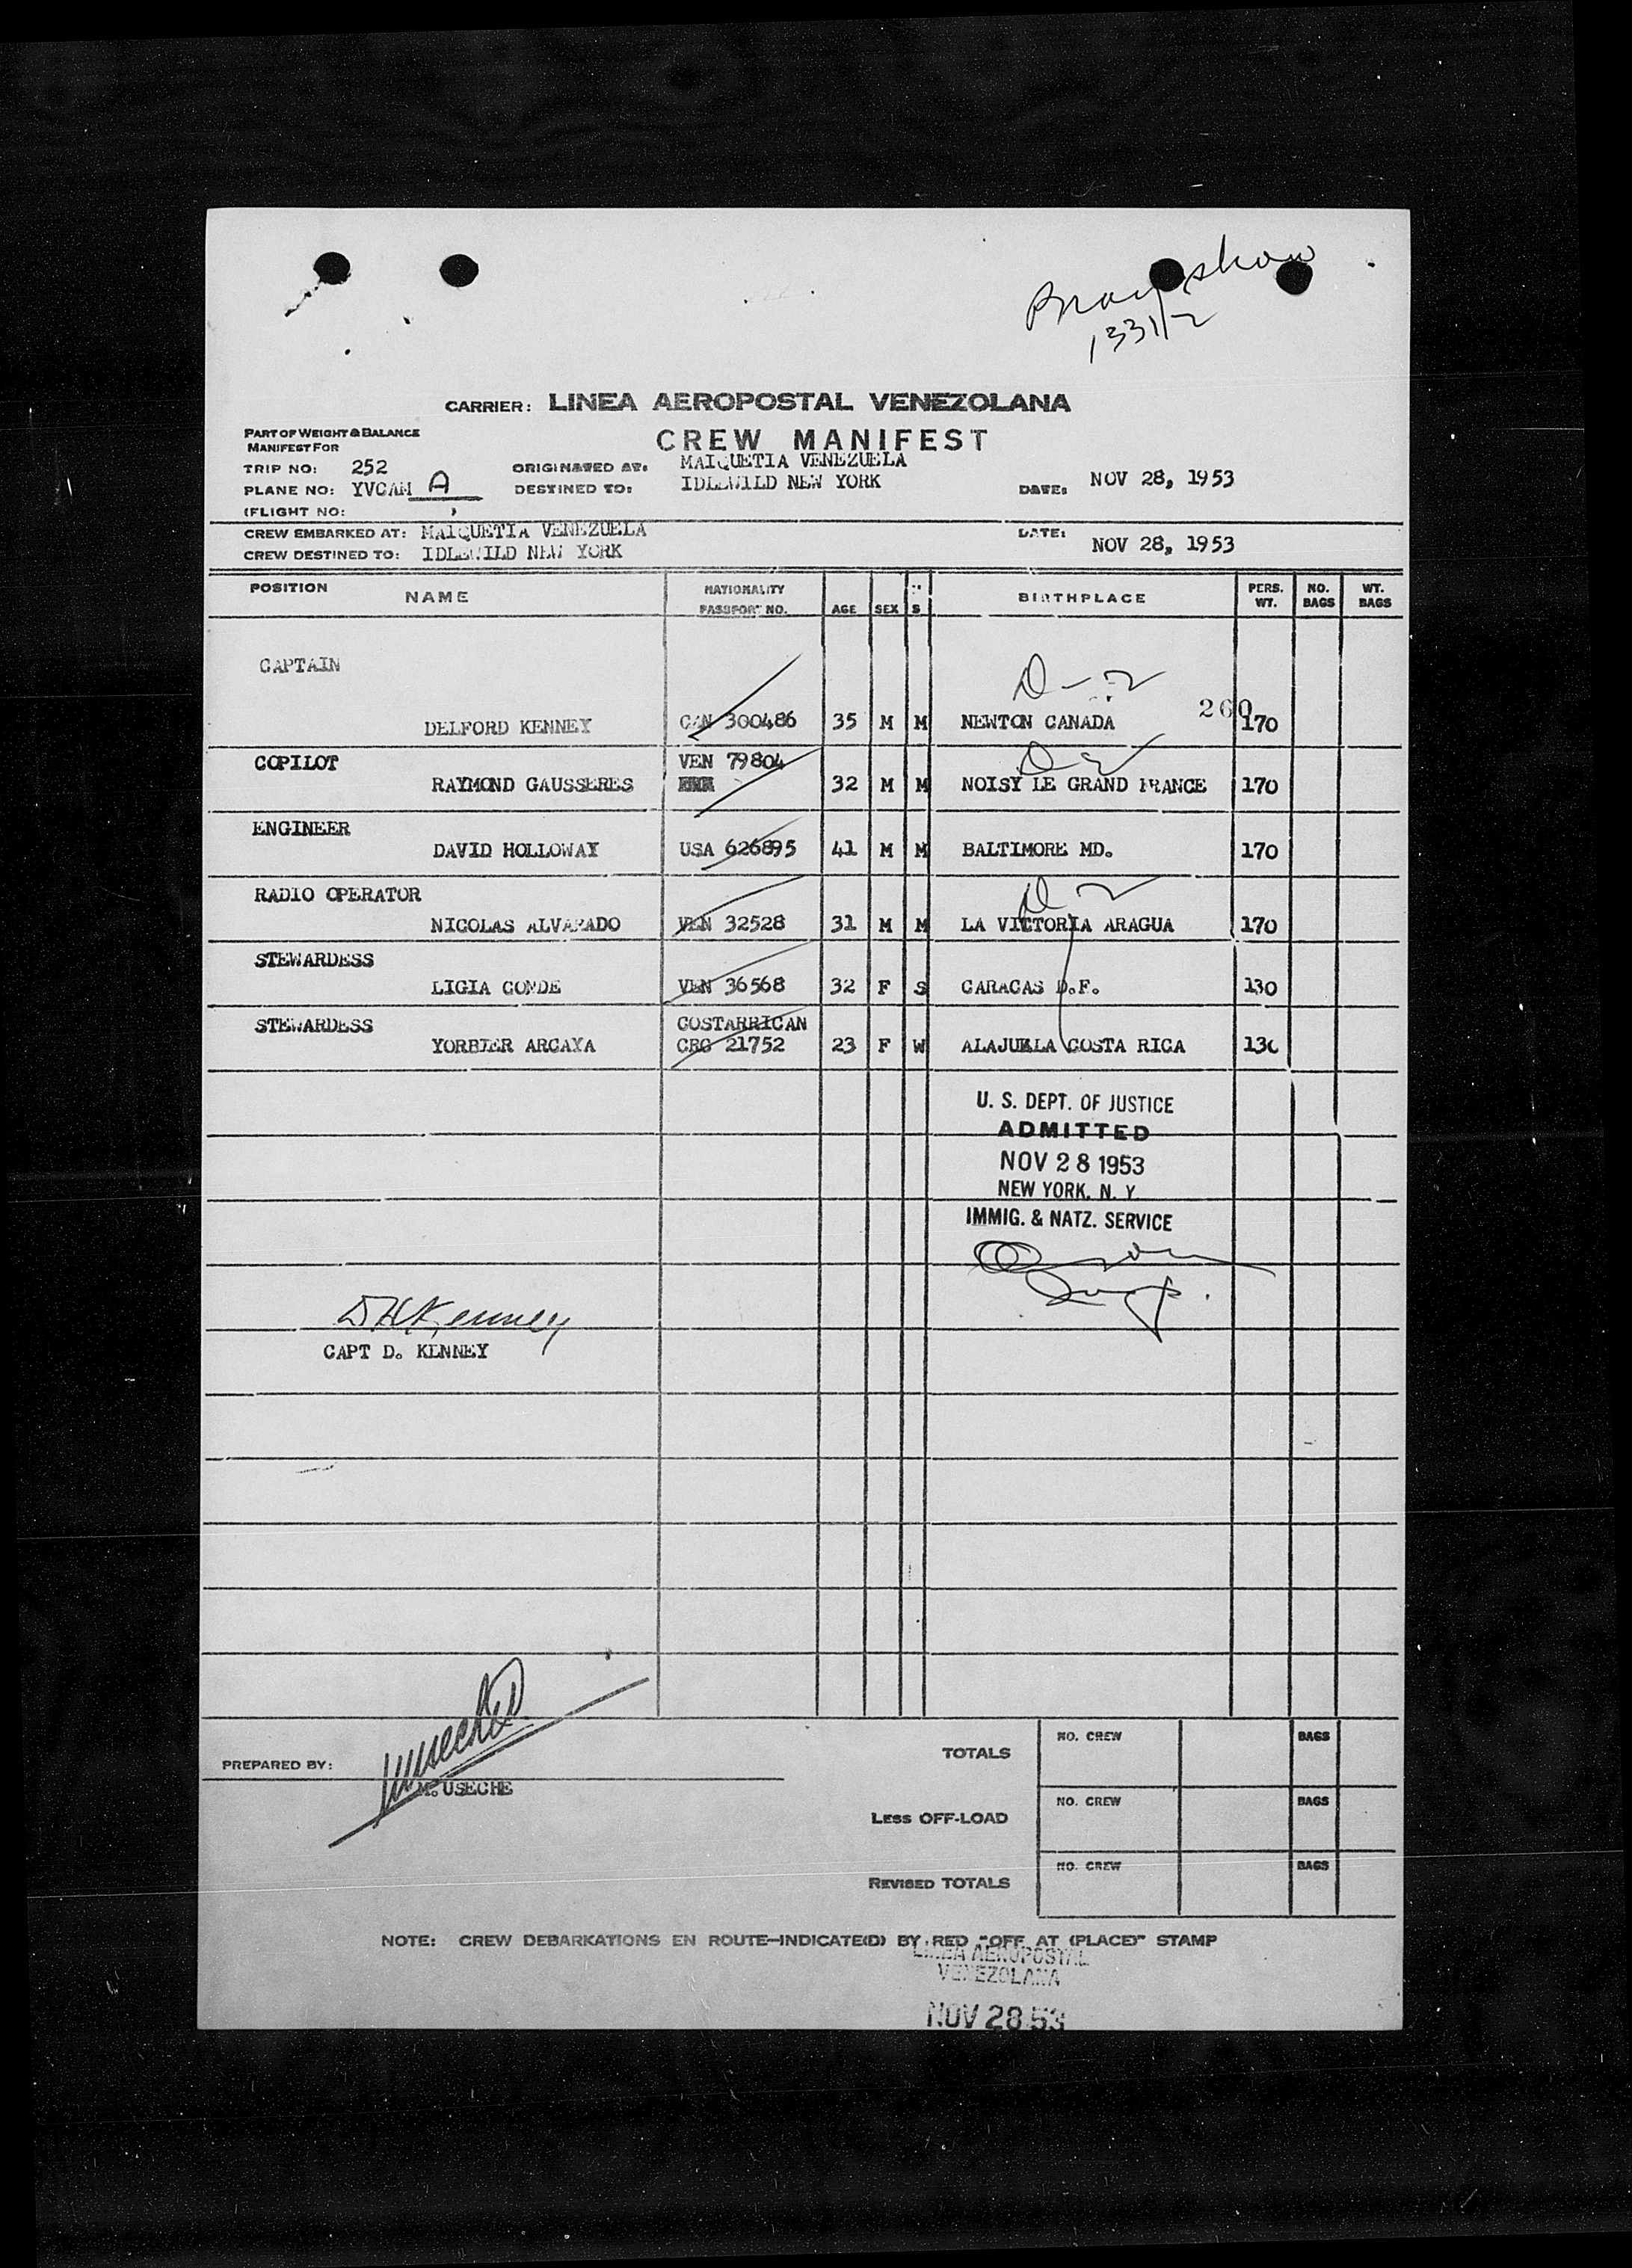 1331/2
CARRIER: LINEA AEROPOSTAL VENEZOLANA
PART OF WEIGHT & BALANCE
MANIFEST FOR
CREW MANIFEST
TRIP NO: 252 ORIGINATED AT: MAIQUETIA VENEZUELA
PLANE NO: YVCAM A DESTINED TO: IDLEWILD NEW YORK DATE: NOV 28, 1953
(FLIGHT NO: )
CREW EMBARKED AT: MAIQUETIA VENEZUELA DATE:
CREW DESTINED TO: IDLEWILD NEW YORK NOV 28, 1953
POSITION NAME NATIONALITY PASSPORT NO. AGE SEX S BIRTHPLACE PERS. WT. NO. BAGS WT. BAGS
CAPTAIN
D-2
260
DELFORD KENNEY CAN 300486 35 M M NEWTON CANADA 170
COPILOT VEN 79804 D-2
RAYMOND GAUSSERES 32 M M NOISY LE GRAND FRANCE 170
ENGINEER
DAVID HOLLOWAY USA 626895 41 M M BALTIMORE MD. 170
RADIO OPERATOR D-2
NICOLAS ALVARADO VEN 32528 31 M M LA VICTORIA ARAGUA 170
STEWARDESS
LIGIA CONDE VEN 36568 32 F S CARACAS D.F. 130
STEWARDESS COSTARRICAN
YORBIER ARCAYA CRC 21752 23 F W ALAJUELA COSTA RICA 130
U. S. DEPT. OF JUSTICE
ADMITTED
NOV 28 1953
NEW YORK, N. Y.
IMMIG. & NATZ. SERVICE
D H Kenney
CAPT D. KENNEY
PREPARED BY: Museche
M. USECHE
TOTALS NO. CREW BAGS
LESS OFF-LOAD NO. CREW BAGS
REVISED TOTALS NO. CREW BAGS
NOTE: CREW DEBARKATIONS EN ROUTE—INDICATE(D) BY RED "OFF AT (PLACE)" STAMP
LINEA AEROPOSTAL
VENEZOLANA
NOV 28 53